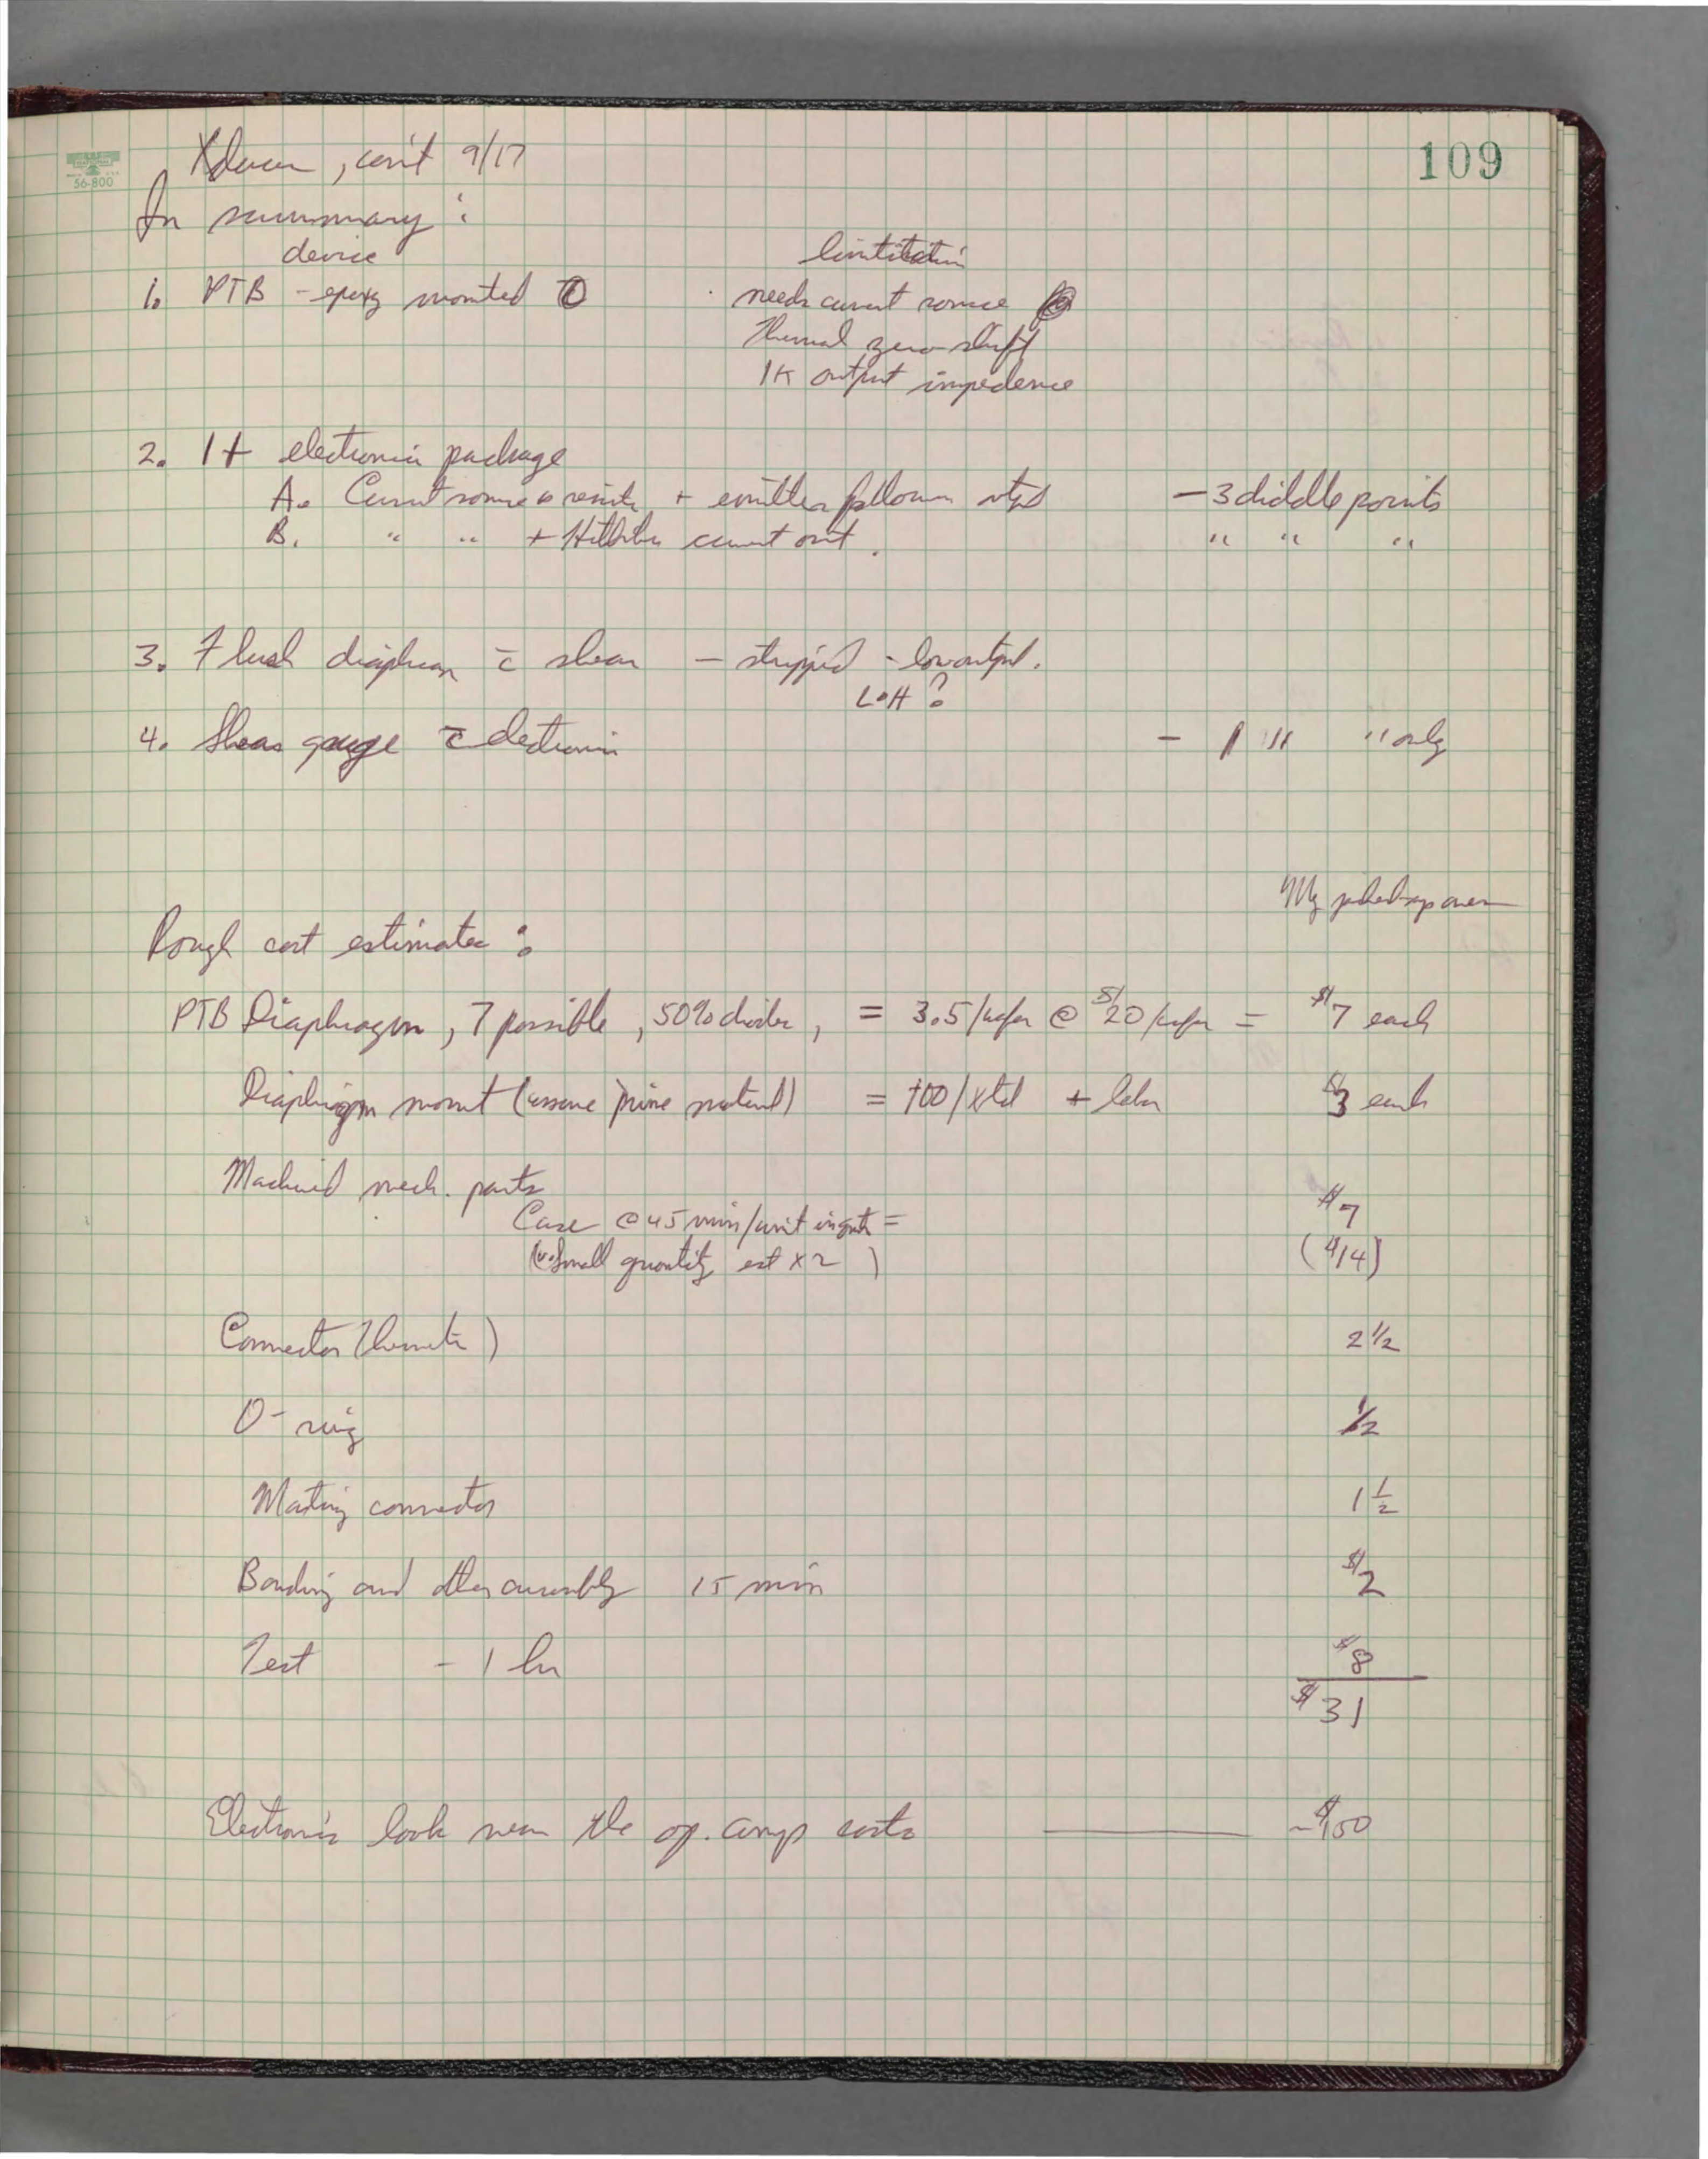 109
NATIONAL
56-800
Xducer, con't 9/17
In summary :
device limitation
1. PTB - epoxy mounted needs current source
thermal zero shift
1K output impedence
2. 1 + electronic package
A. Current source + emitter follower - 3 diddle points
B. " " + current out. " " "
3. Flush diaphram c̄ shear - stripped - low output.
L or H ?
4. Shear gauge c̄ electronic - 1 " " only
My
Rough cost estimates :
PTB Diaphragm, 7 possible, 50% , = 3.5/wafer @ $20/wafer = $7 each
Diaphragm mount (assume prime material) = 100/xtal + labor $3 each
Machined mech. parts
Case @ 45 min/unit = $7
(small quantity est x 2) ($14)
Connector (hermetic) 2 1/2
O-ring 1/2
Mating connector 1 1/2
Bonding and other assembly 15 min $2
Test - 1 hr $8
$31
Electronics look near the op. amp costs ~$100